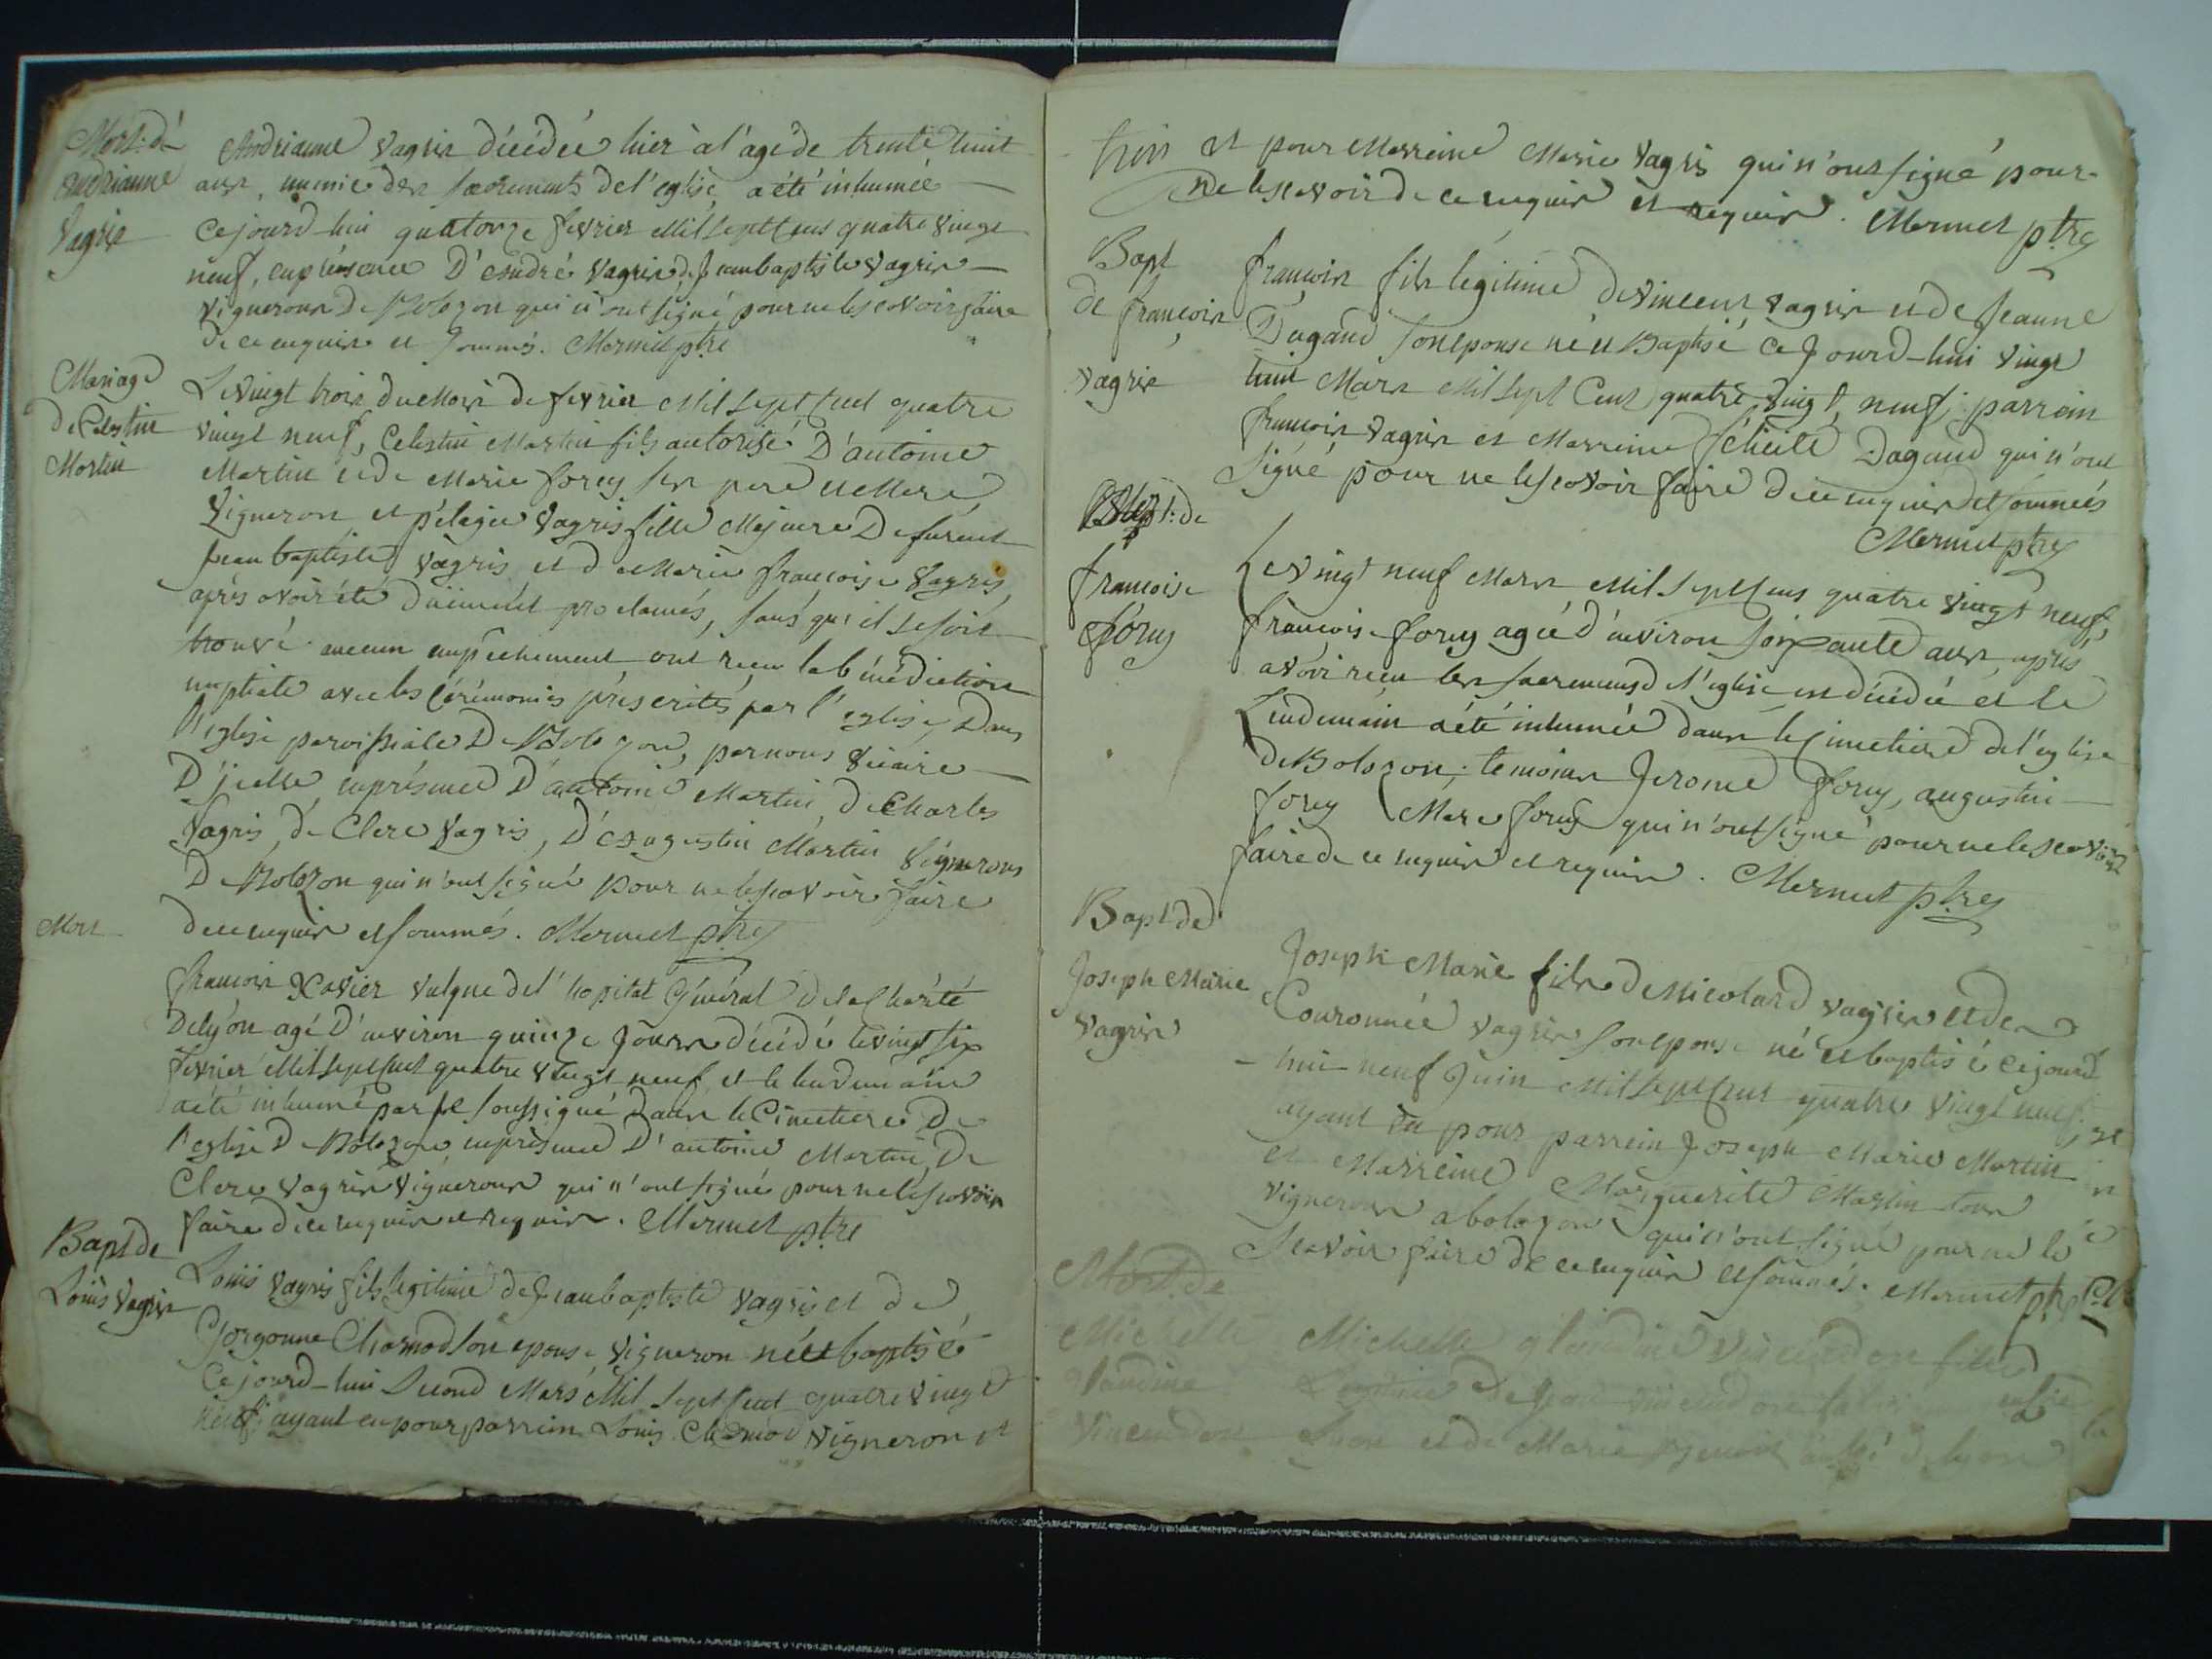 Mort: de
Andrianne
Vagris
Andrianne Vagris décédée hier à l'age de trente huit
ans, munie des sacrements de l'eglise, a été inhumée
Cejourd-hui quatorze fevrier Mil Sept Cens quatre vingt
neuf, en présence D'André Vagris, de Jean baptiste Vagris
vignerons De Bolozon qui n'ont signé pour ne le scavoir faire
de ce enquis et sommés. Mermet ptre
Mariage
De Celestin
Martin
Le vingt trois du Mois de fevrier Mil Sept Cent quatre
vingt neuf, Celestin Martin fils autorisé D'antoine
Martin et de Marie forey ses pere et Mere
Vigneron et pélagie Vagris fille Majeure De furent
Jean baptiste Vagris et de Marie francoise Vagris,
après avoir été dûement proclamés, sans qu'il se soit
trouvé aucun empêchement ont reçu la bénédiction
nuptiale avec les Cérémonies préscrites par l'eglise, Dans
l'église paroissiale De Bolozon, par nous vicaire
D'jcelle, en présence D'antoine Martin, de Charles
Vagris, de Clere Vagris, D'Augustin Martin Vignerons
De Bolozon qui n'ont signé pour ne le scavoir faire
de ce enquis et sommés. Mermet ptre
Mort
francois Xavier Vulque de l' hopital Général de la Charité
De lyon agé D'environ quinze Jours décédé le vingt six
fevrier Mil Sept Cent quatre vingt neuf et le lendemain
a été inhumé par je soussigné dans le Cimetiere De
l'eglise De Bolozon, en présence D'antoine Martin, De
Clere Vagris Vignerons qui n'ont signé pour ne le scavoir
faire de ce enquis et requis. Mermet ptre
Bapt de
Loüis Vagris
Loüis Vagris fils legitime de Jean baptiste Vagris et de
Gorgonne Charnod son epouse Vigneron né et baptisé
Cejourd-hui Second Mars Mil Sept Cent quatre vingt
neuf; ayant eu pour parrein Louis Charnod Vigneron et
et pour Marreine Marie Vagris qui n'ont signé pour
ne le scavoir de ce enquis et requis. Mermet ptre
Bapt
de francois
Vagris
francois fils légitime de Vincent Vagris et de Jeanne
Dugand son epouse né et Baptisé Ce Jourd-hui vingt
huit Mars Mil Sept Cent quatre vingt neuf; parrein
francois Vagris et Marreine félicité Dagand qui n'ont
Signé pour ne le scavoir faire de ce enquis et sommés
Mermet ptre
Mort: de
francoise
forey
Le vingt neuf Mars Mil Sept Cens quatre vingt neuf,
francoise forey agée d'environ soixante ans, après
avoir reçu les sacremens de l'eglise est décédée et le
Lendemain a été inhumée dans le Cimetiere de l'eglise
De Bolozon; temoins Jerome forey, augustin
forey Marc forey qui n'ont signé pour ne le scavoir
faire de ce enquis et requis. Mermet ptre
Bapt de
Joseph Marie
Vagris
Joseph Marie fils de Nicolard Vagris et de
Couronnée Vagris son epouse né et baptisé Cejourd
hui neuf Juin Mil Sept Cent quatre vingt neuf;
ayant eu pour parrein Joseph Marie Martin
et Marreine Marguerite Martin tous
vignerons a bolozon qui n'ont signé pour ne le
scavoir faire de ce enquis et sommés. Mermet ptre
Mort de
Michelle
Claudine
Vincendon
Michelle Claudine Vincendon fille
Légitime de Jean Vincendon
Lyon et de Marie de Lyon